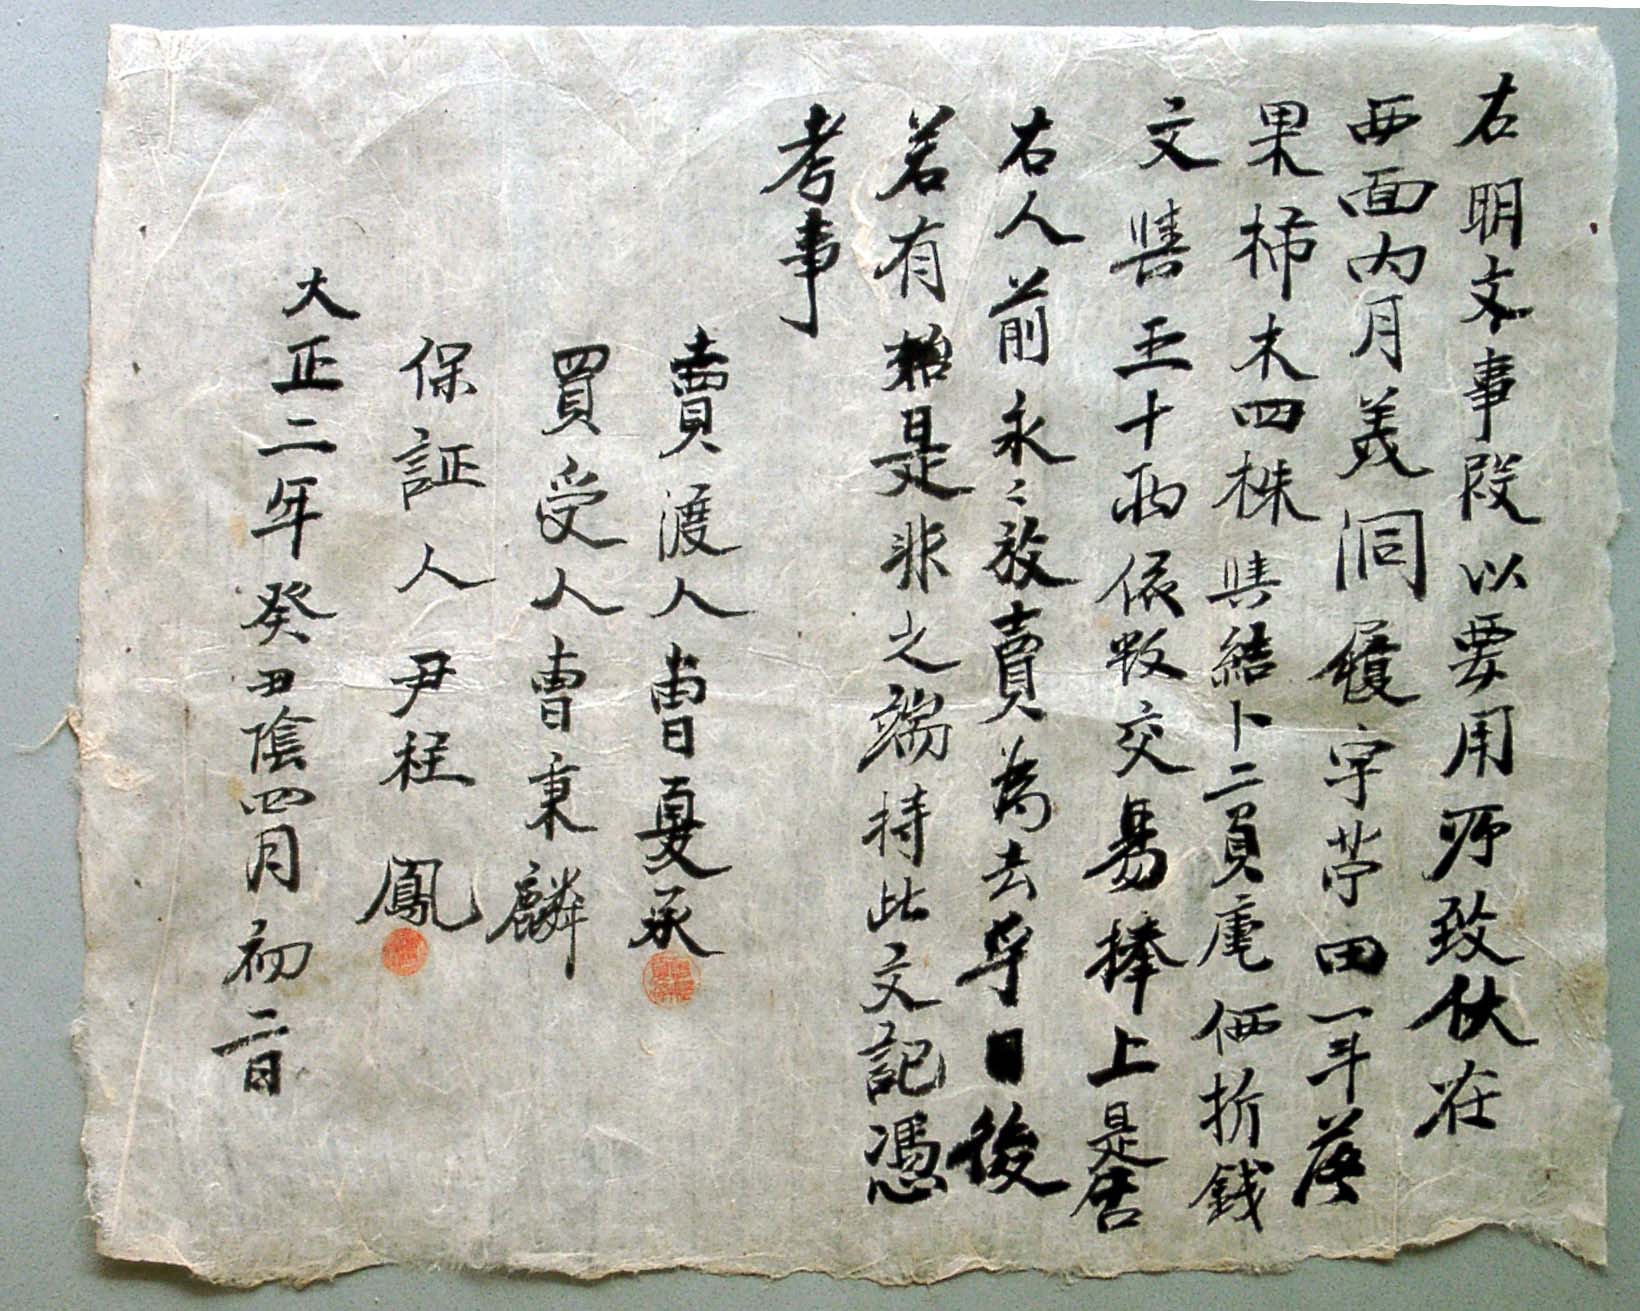 右明文事段以要用所致伏在
西面内月美洞履字苧田一斗落
果柿木四株与結卜二負庫価折錢
文与五十両依数交易捧上是居
右人前永〻放賣為去乎日後
若有是非之端持此文記憑
考事
賣渡人曺夏承
買受人曺秉麟
保証人尹桂鳳
大正二年癸丑陰四月初二日